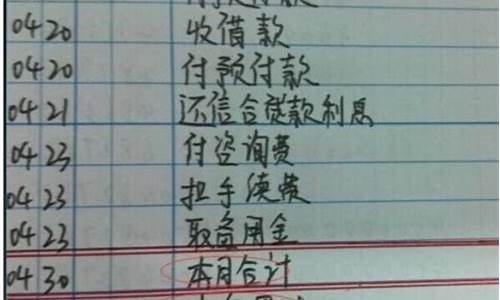 0420 收借款
0420 付预付款
0421 还信合贷款利息
0423 付咨询费
0423 扣手续费
0423 取备用金
0430 本月合计